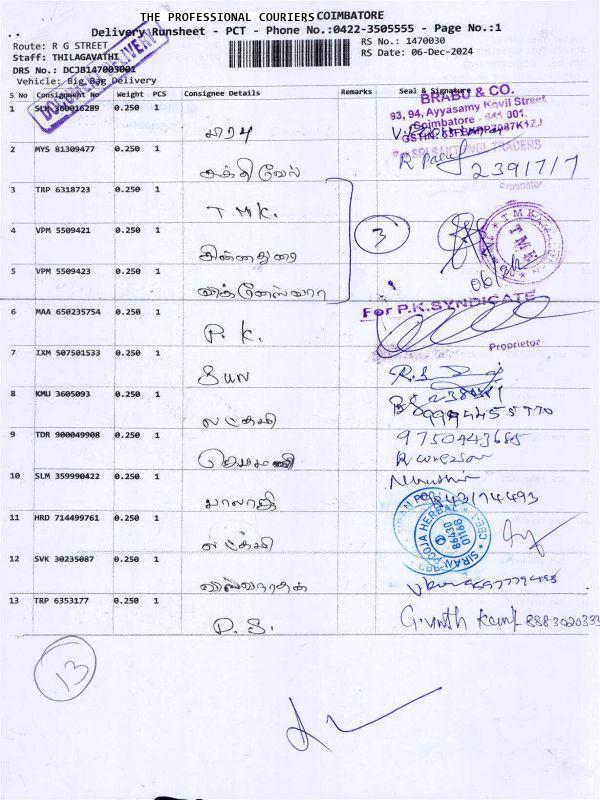 THE PROFESSIONAL COURIERS COIMBATORE
Delivery Runsheet - PCT - Phone No.:0422-3505555 - Page No.:1
Route: R G STREET
RS No.: 1470030
Staff: THILAGAVATHI
RS Date: 06-Dec-2024
DRS No.: DCJB147003001
Vehicle: Big Bag Delivery
S No Consignment No Weight PCS Consignee Details Remarks Seal & Signature
BRABU & CO.
93, 94, Ayyasamy Kovil Street
Coimbatore - 641 001.
1 SLM 360016289 0.250 1
பாரபு
2 MYS 81309477 0.250 1
சக்திவேல்
2391717
3 TRP 6318723 0.250 1
TMK.
3
TMK
4 VPM 5509421 0.250 1
சின்னதுரை
5 VPM 5509423 0.250 1
விக்னேஸ்வரா
06/12/24
For P.K.SYNDICATE
Proprietor
6 MAA 650235754 0.250 1
P. K.
7 IXM 507501533 0.250 1
Sun
8 KMU 3605093 0.250 1
லட்சுமி
9 TDR 900049908 0.250 1
ஜெயமணி
9750443685
10 SLM 359990422 0.250 1
பாலாஜி
SIRAN POOJA HERBAL
11 HRD 714499761 0.250 1
லட்சுமி
12 SVK 30235087 0.250 1
விஸ்வநாதன்
13 TRP 6353177 0.250 1
P. S.
8883020333
13